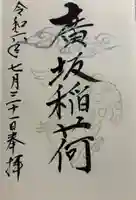 廣坂稲荷
令和六年七月二十一日奉拝